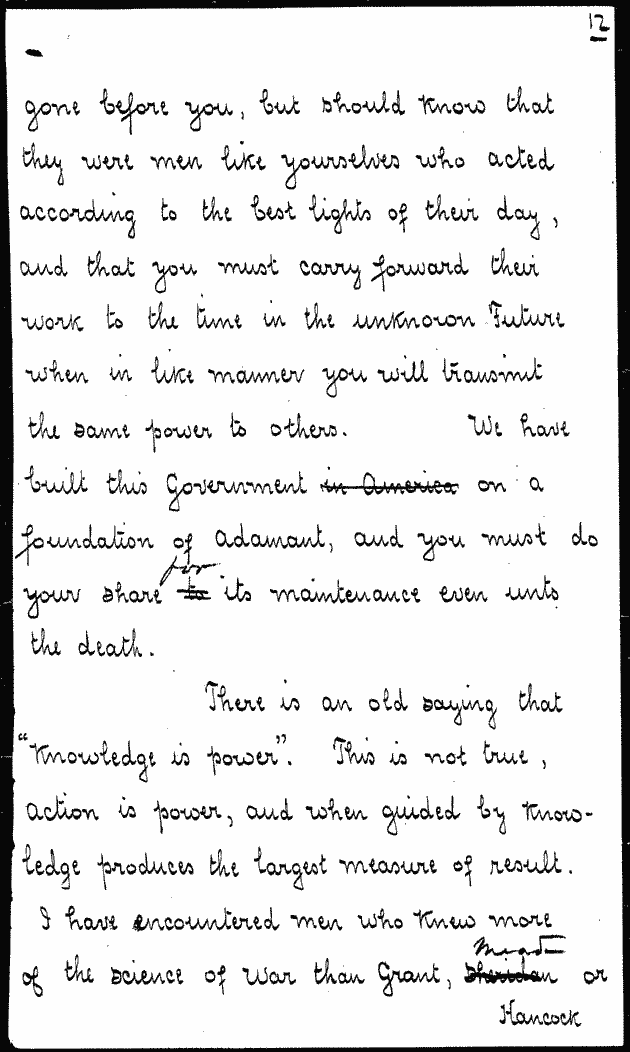 12
gone before you, but should know that
they were men like yourselves who acted
according to the best lights of their day,
and that you must carry forward their
work to the time in the unknown Future
when in like manner you will transmit
the same power to others. We have
built this Government in America on a
foundation of adamant, and you must do
for
your share to its maintenance even unto
the death.
There is an old saying that
"Knowledge is power". This is not true,
action is power, and when guided by Know-
ledge produces the largest measure of result.
I have encountered men who knew more
Meade
of the science of War than Grant, Sheridan or
Hancock